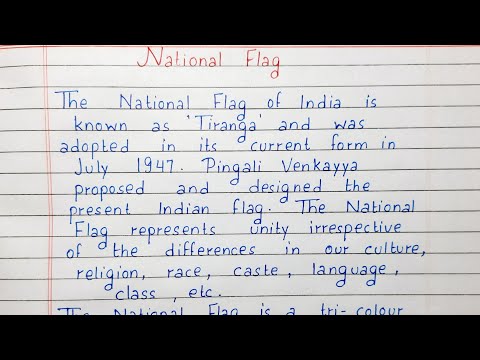 National Flag
The National Flag of India is
known as 'Tiranga' and was
adopted in its current form in
July 1947. Pingali Venkayya
proposed and designed the
present Indian flag. The National
Flag represents unity irrespective
of the differences in our culture,
religion, race, caste, language,
class, etc.
The National Flag is a tri-colour